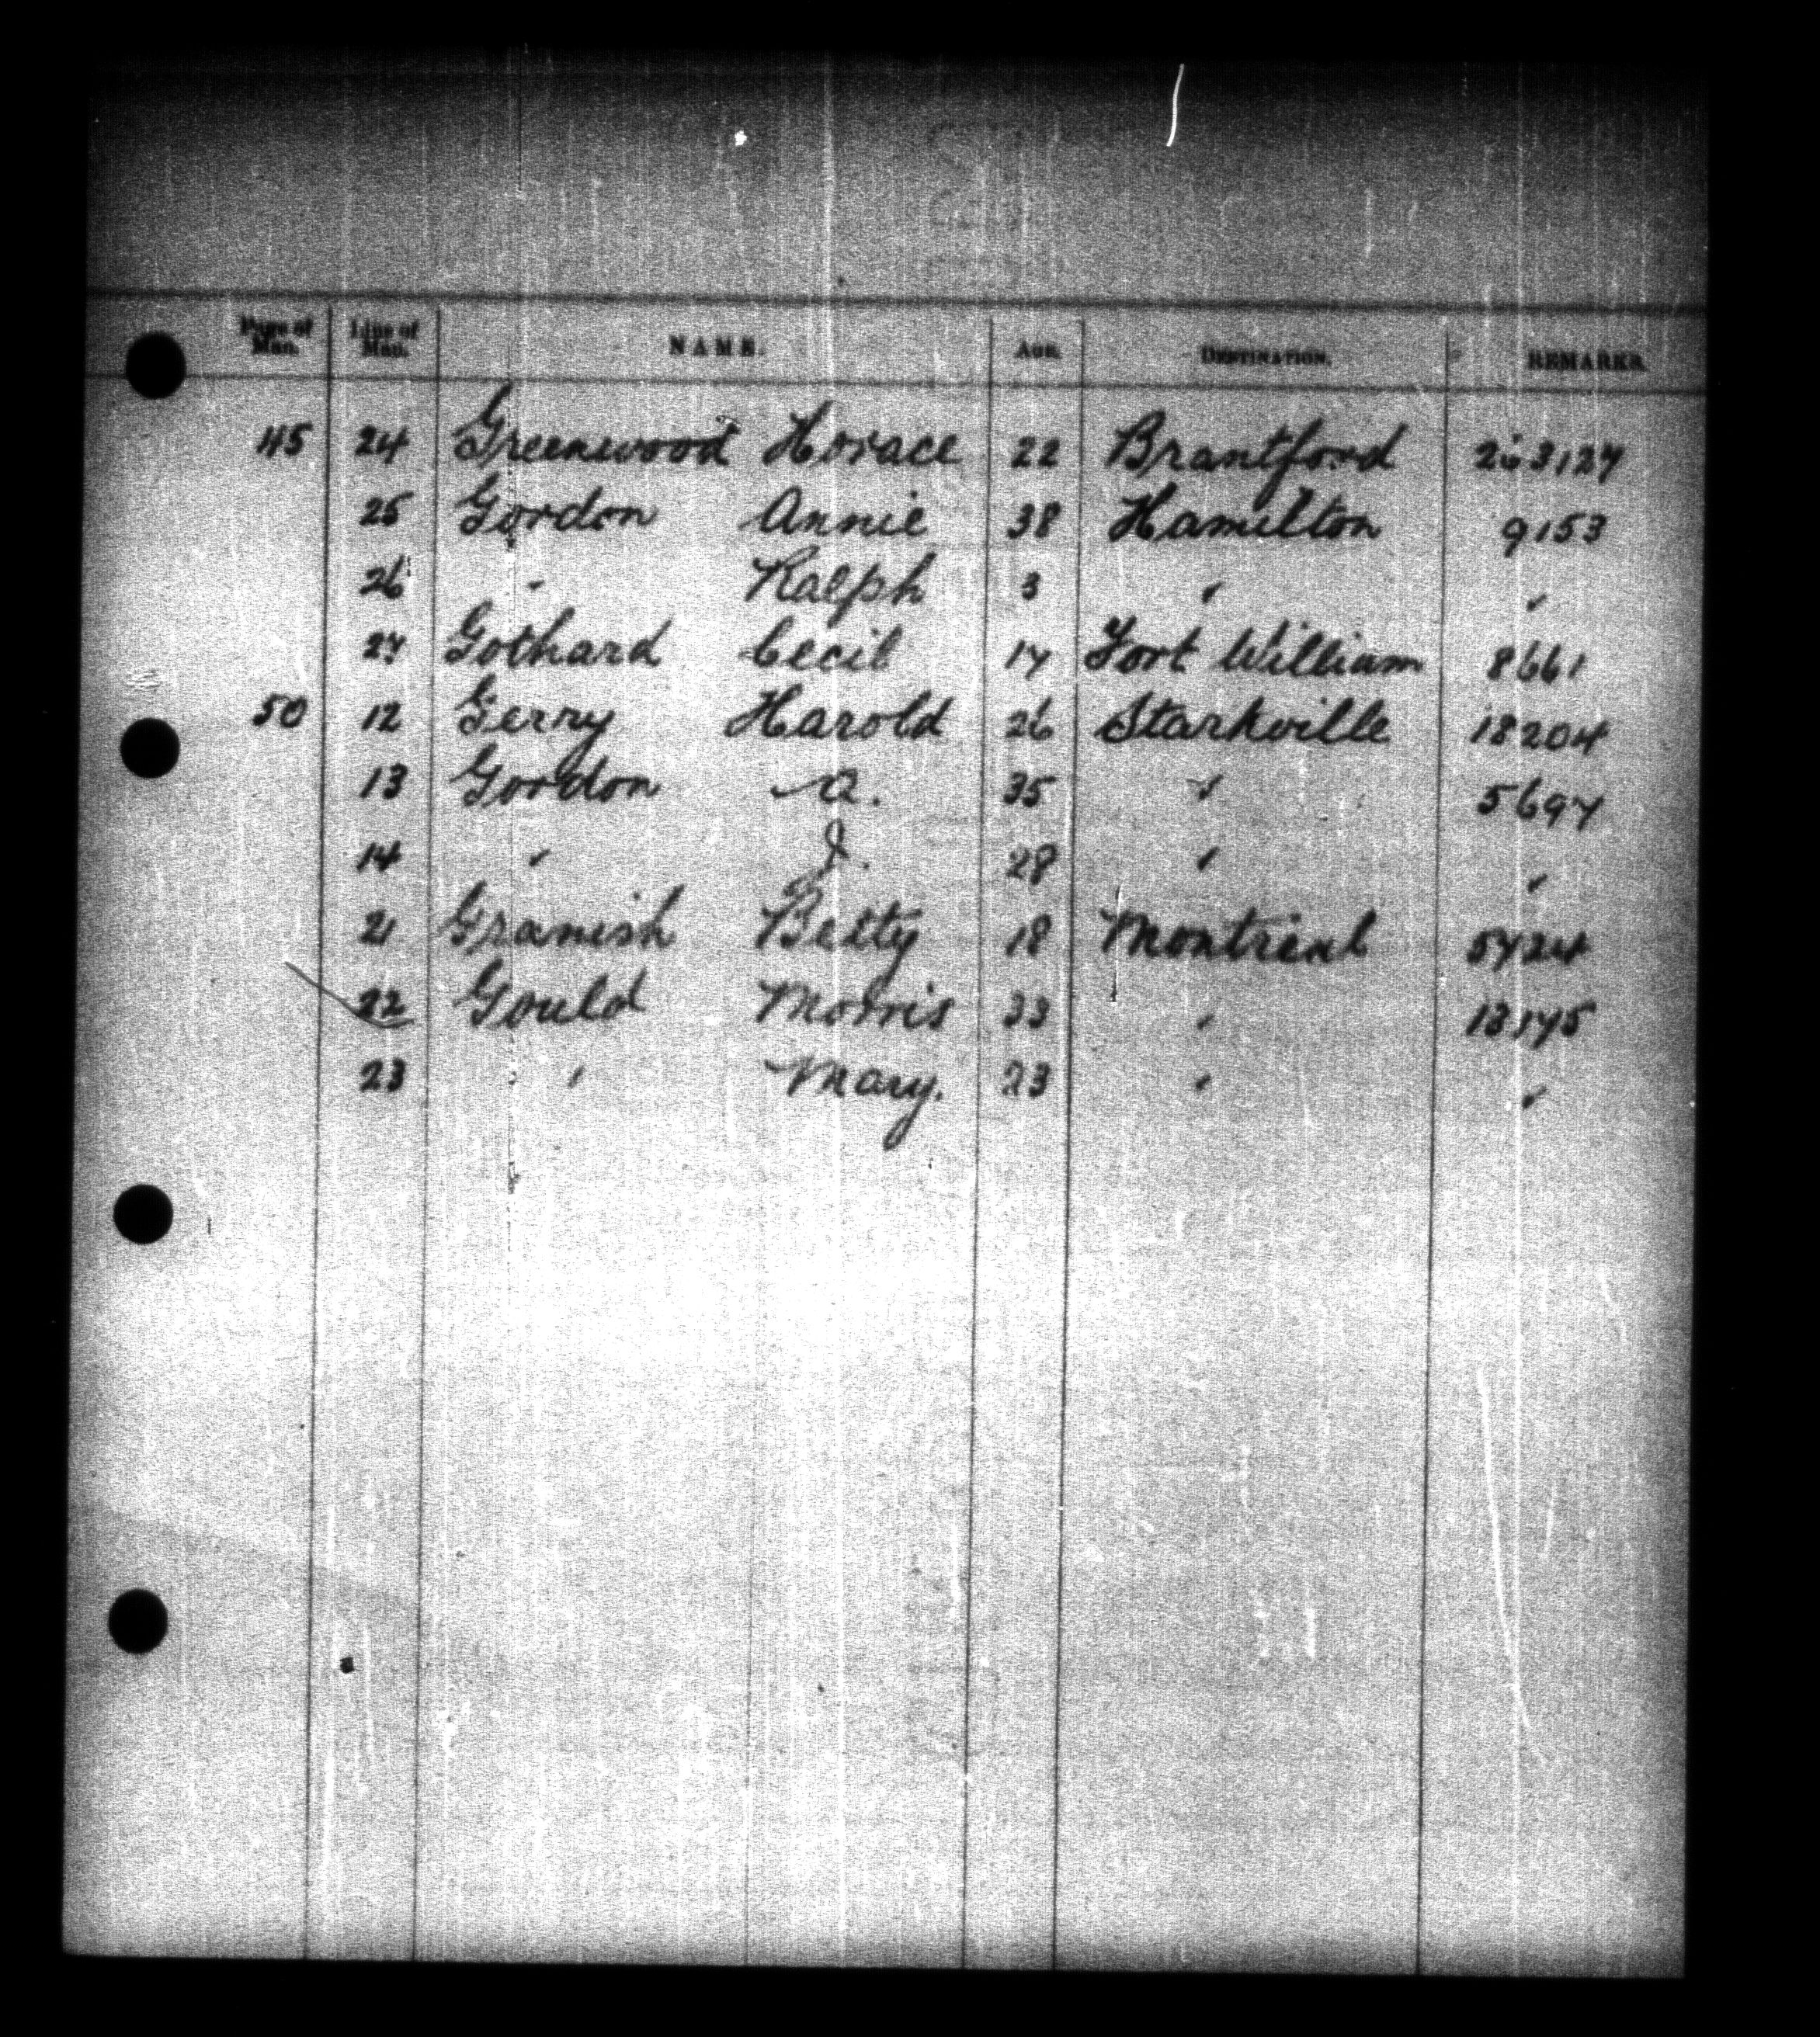 Page of Man. Line of Man. NAME. AGE. DESTINATION. REMARKS.
45 24 Greenwood Horace 22 Brantford 263127
25 Gordon Annie 38 Hamilton 9153
26 " Ralph 3 " "
27 Gothard Cecil 17 Fort William 8661
50 12 Gerry Harold 26 Starkville 18204
13 Gordon A. 35 " 5697
14 " J. 28 " "
21 Granish Betty 18 Montreal 5724
22 Gould Morris 33 " 13175
23 " Mary. 23 " "